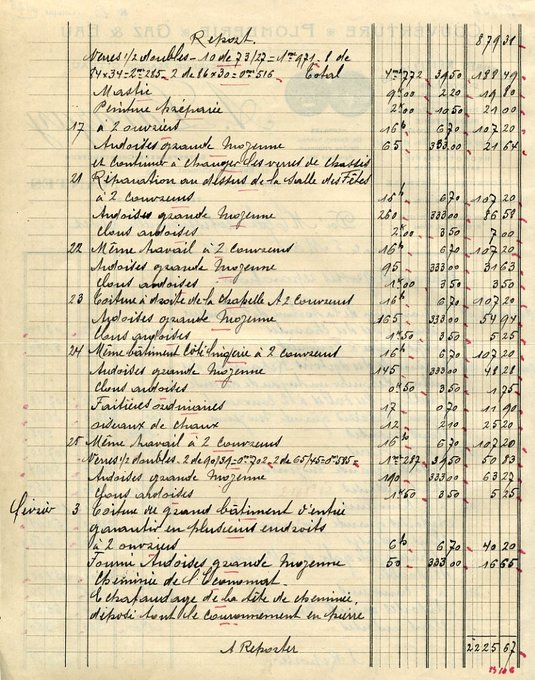 Report. 879 31
Verres 1/2 doubles - 10 de 73/27 = 1m971 - 8 de
84 x 34 = 2m285 - 2 de 86 x 30 = 0m516 Total 4m772 39 50 188 49
Mastic 9k00 2 20 19 80
Peinture préparée 2k00 10 50 21 00
17 à 2 ouvriers 16h 6 70 107 20
Ardoises grande Mozenne 65 333 00 21 64
et continuer à changer les verres de chassis
21 Réparation au dessus de la Salle des Fêtes
à 2 couvreurs 16h 6 70 107 20
Ardoises grande Mozenne 260 333 00 86 58
Clous ardoises 2k00 3 50 7 00
22 Même travail à 2 couvreurs 16h 6 70 107 20
Ardoises grande Mozenne 95 333 00 31 63
Clous ardoises 1k00 3 50 3 50
23 Toiture à droite de la chapelle A 2 couvreurs 16h 6 70 107 20
Ardoises grande Mozenne 165 333 00 54 94
Clous ardoises 1k50 3 50 5 25
24 Même bâtiment Côté lingerie à 2 couvreurs 16h 6 70 107 20
Ardoises grande Mozenne 145 333 00 48 28
Clous ardoises 0k50 3 50 1 75
Faitières ordinaires 17 0 70 11 90
sideaux de chaux 12 2 10 25 20
25 Même travail à 2 couvreurs 16h 6 70 107 20
Verres 1/2 doubles - 2 de 90/39 = 0m702, 2 de 65/45 = 0m585 1m287 39 50 50 83
Ardoises grande Mozenne 190 333 00 63 27
Clous ardoises 1k50 3 50 5 25
Février 3 Toiture du grand bâtiment d'entrée
garantir en plusieurs endroits
à 2 ouvriers 6h 6 70 40 20
Fourni Ardoises grande Mozenne 50 333 00 16 65
Cheminée de l'Economat.
Echafaudage de la tête de cheminée,
déposé tout le couronnement en pierre
A Reporter 2225 67